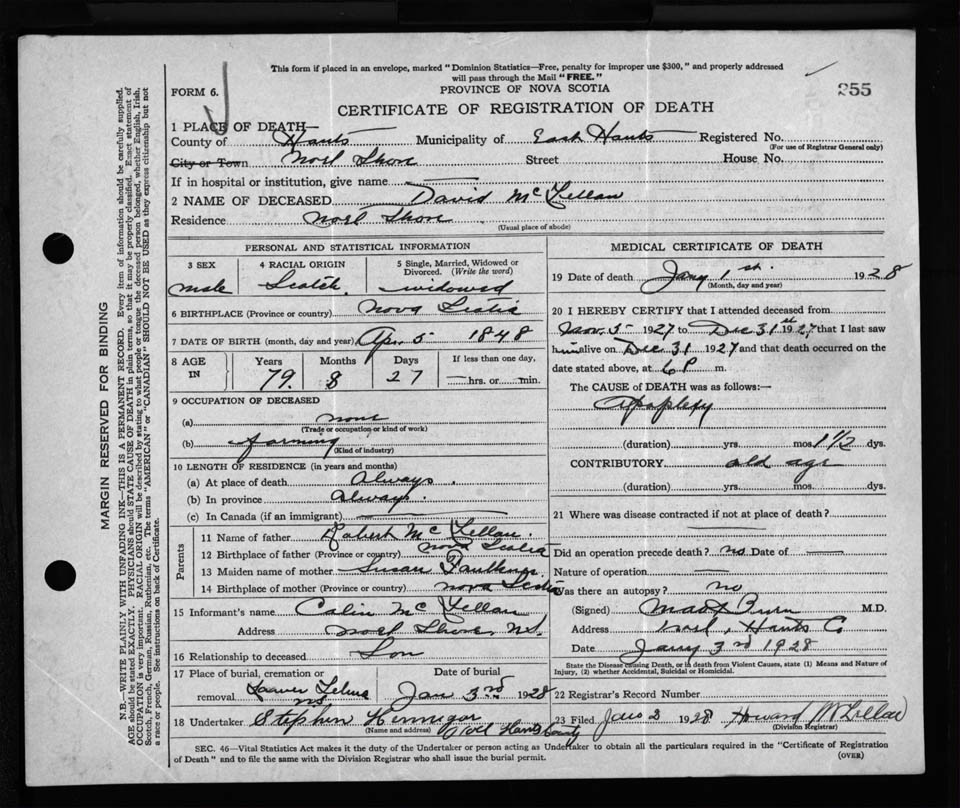 This form if placed in an envelope, marked "Dominion Statistics—Free, penalty for improper use $300," and properly addressed
will pass through the Mail "FREE."
FORM 6.
PROVINCE OF NOVA SCOTIA
855
CERTIFICATE OF REGISTRATION OF DEATH
1 PLACE OF DEATH—
County of Hants Municipality of East Hants Registered No.
(For use of Registrar General only)
City or Town Noel Shore Street House No.
If in hospital or institution, give name
2 NAME OF DECEASED David McLellan
Residence Noel Shore
(Usual place of abode)
PERSONAL AND STATISTICAL INFORMATION
3 SEX 4 RACIAL ORIGIN 5 Single, Married, Widowed or
Divorced. (Write the word)
male Scotch widowed
6 BIRTHPLACE (Province or country) Nova Scotia
7 DATE OF BIRTH (month, day and year) Apr 5 1848
8 AGE IN Years Months Days If less than one day,
79 8 27 hrs. or min.
9 OCCUPATION OF DECEASED
(a) none
(Trade or occupation or kind of work)
(b) farming
(Kind of industry)
10 LENGTH OF RESIDENCE (in years and months)
(a) At place of death Always.
(b) In province always.
(c) In Canada (if an immigrant)
Parents
11 Name of father Robert McLellan
12 Birthplace of father (Province or country) Nova Scotia
13 Maiden name of mother Susan Faulkner
14 Birthplace of mother (Province or country) Nova Scotia
15 Informant's name Colin McLellan
Address Noel Shore, N.S.
16 Relationship to deceased Son
17 Place of burial, cremation or Date of burial
removal NS Jan 3rd 1928
18 Undertaker Stephen Hennigar
(Name and address) Noel Hants County
MEDICAL CERTIFICATE OF DEATH
19 Date of death Jany 1st. 1928
(Month, day and year)
20 I HEREBY CERTIFY that I attended deceased from
5 1927 to Dec 31st 1927, that I last saw
him alive on Dec 31 1927 and that death occurred on the
date stated above, at 6 P m.
The CAUSE of DEATH was as follows:—
Apoplexy
(duration) yrs. mos 1 1/2 dys.
CONTRIBUTORY old age
(duration) yrs. mos. dys.
21 Where was disease contracted if not at place of death?
Did an operation precede death? no Date of
Nature of operation
Was there an autopsy? no
(Signed) M.D.
Address Noel, Hants Co
Date Jany 3rd 1928
State the Disease causing Death, or in death from Violent Causes, state (1) Means and Nature of
Injury, (2) whether Accidental, Suicidal or Homicidal.
22 Registrar's Record Number
23 Filed 1928 Howard McLellan
(Division Registrar)
SEC. 46—Vital Statistics Act makes it the duty of the Undertaker or person acting as Undertaker to obtain all the particulars required in the "Certificate of Registration
of Death" and to file the same with the Division Registrar who shall issue the burial permit.
(OVER)
MARGIN RESERVED FOR BINDING
N.B.—WRITE PLAINLY WITH UNFADING INK—THIS IS A PERMANENT RECORD. Every item of information should be carefully supplied.
AGE should be stated EXACTLY. PHYSICIANS should STATE CAUSE OF DEATH in plain terms, so that it may be properly classified. Exact statement of
OCCUPATION is very important. RACIAL ORIGIN will be described by stating to what people or tongue the deceased person belonged, whether English, Irish,
Scotch, French, German, Russian, Ruthenian, etc. The terms "AMERICAN" or "CANADIAN" SHOULD NOT BE USED as they express citizenship but not
a race or people. See instructions on back of Certificate.